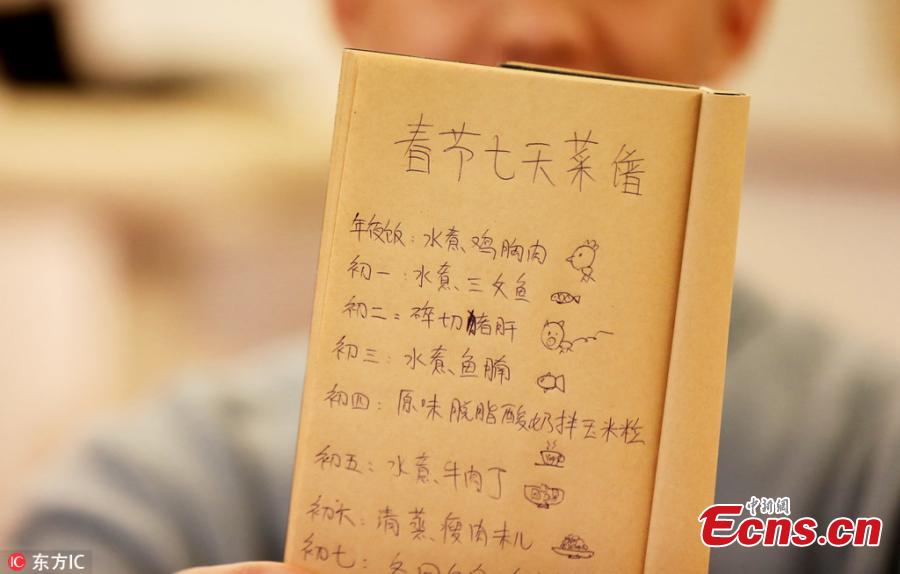 春节七天菜谱
年夜饭：水煮鸡胸肉
初一：水煮三文鱼
初二：碎切猪肝
初三：水煮鱼腩
初四：原味脱脂酸奶拌玉米粒
初五：水煮牛肉丁
初六：清蒸瘦肉末儿
初七：
中新網
Ecns.cn
IC 东方IC